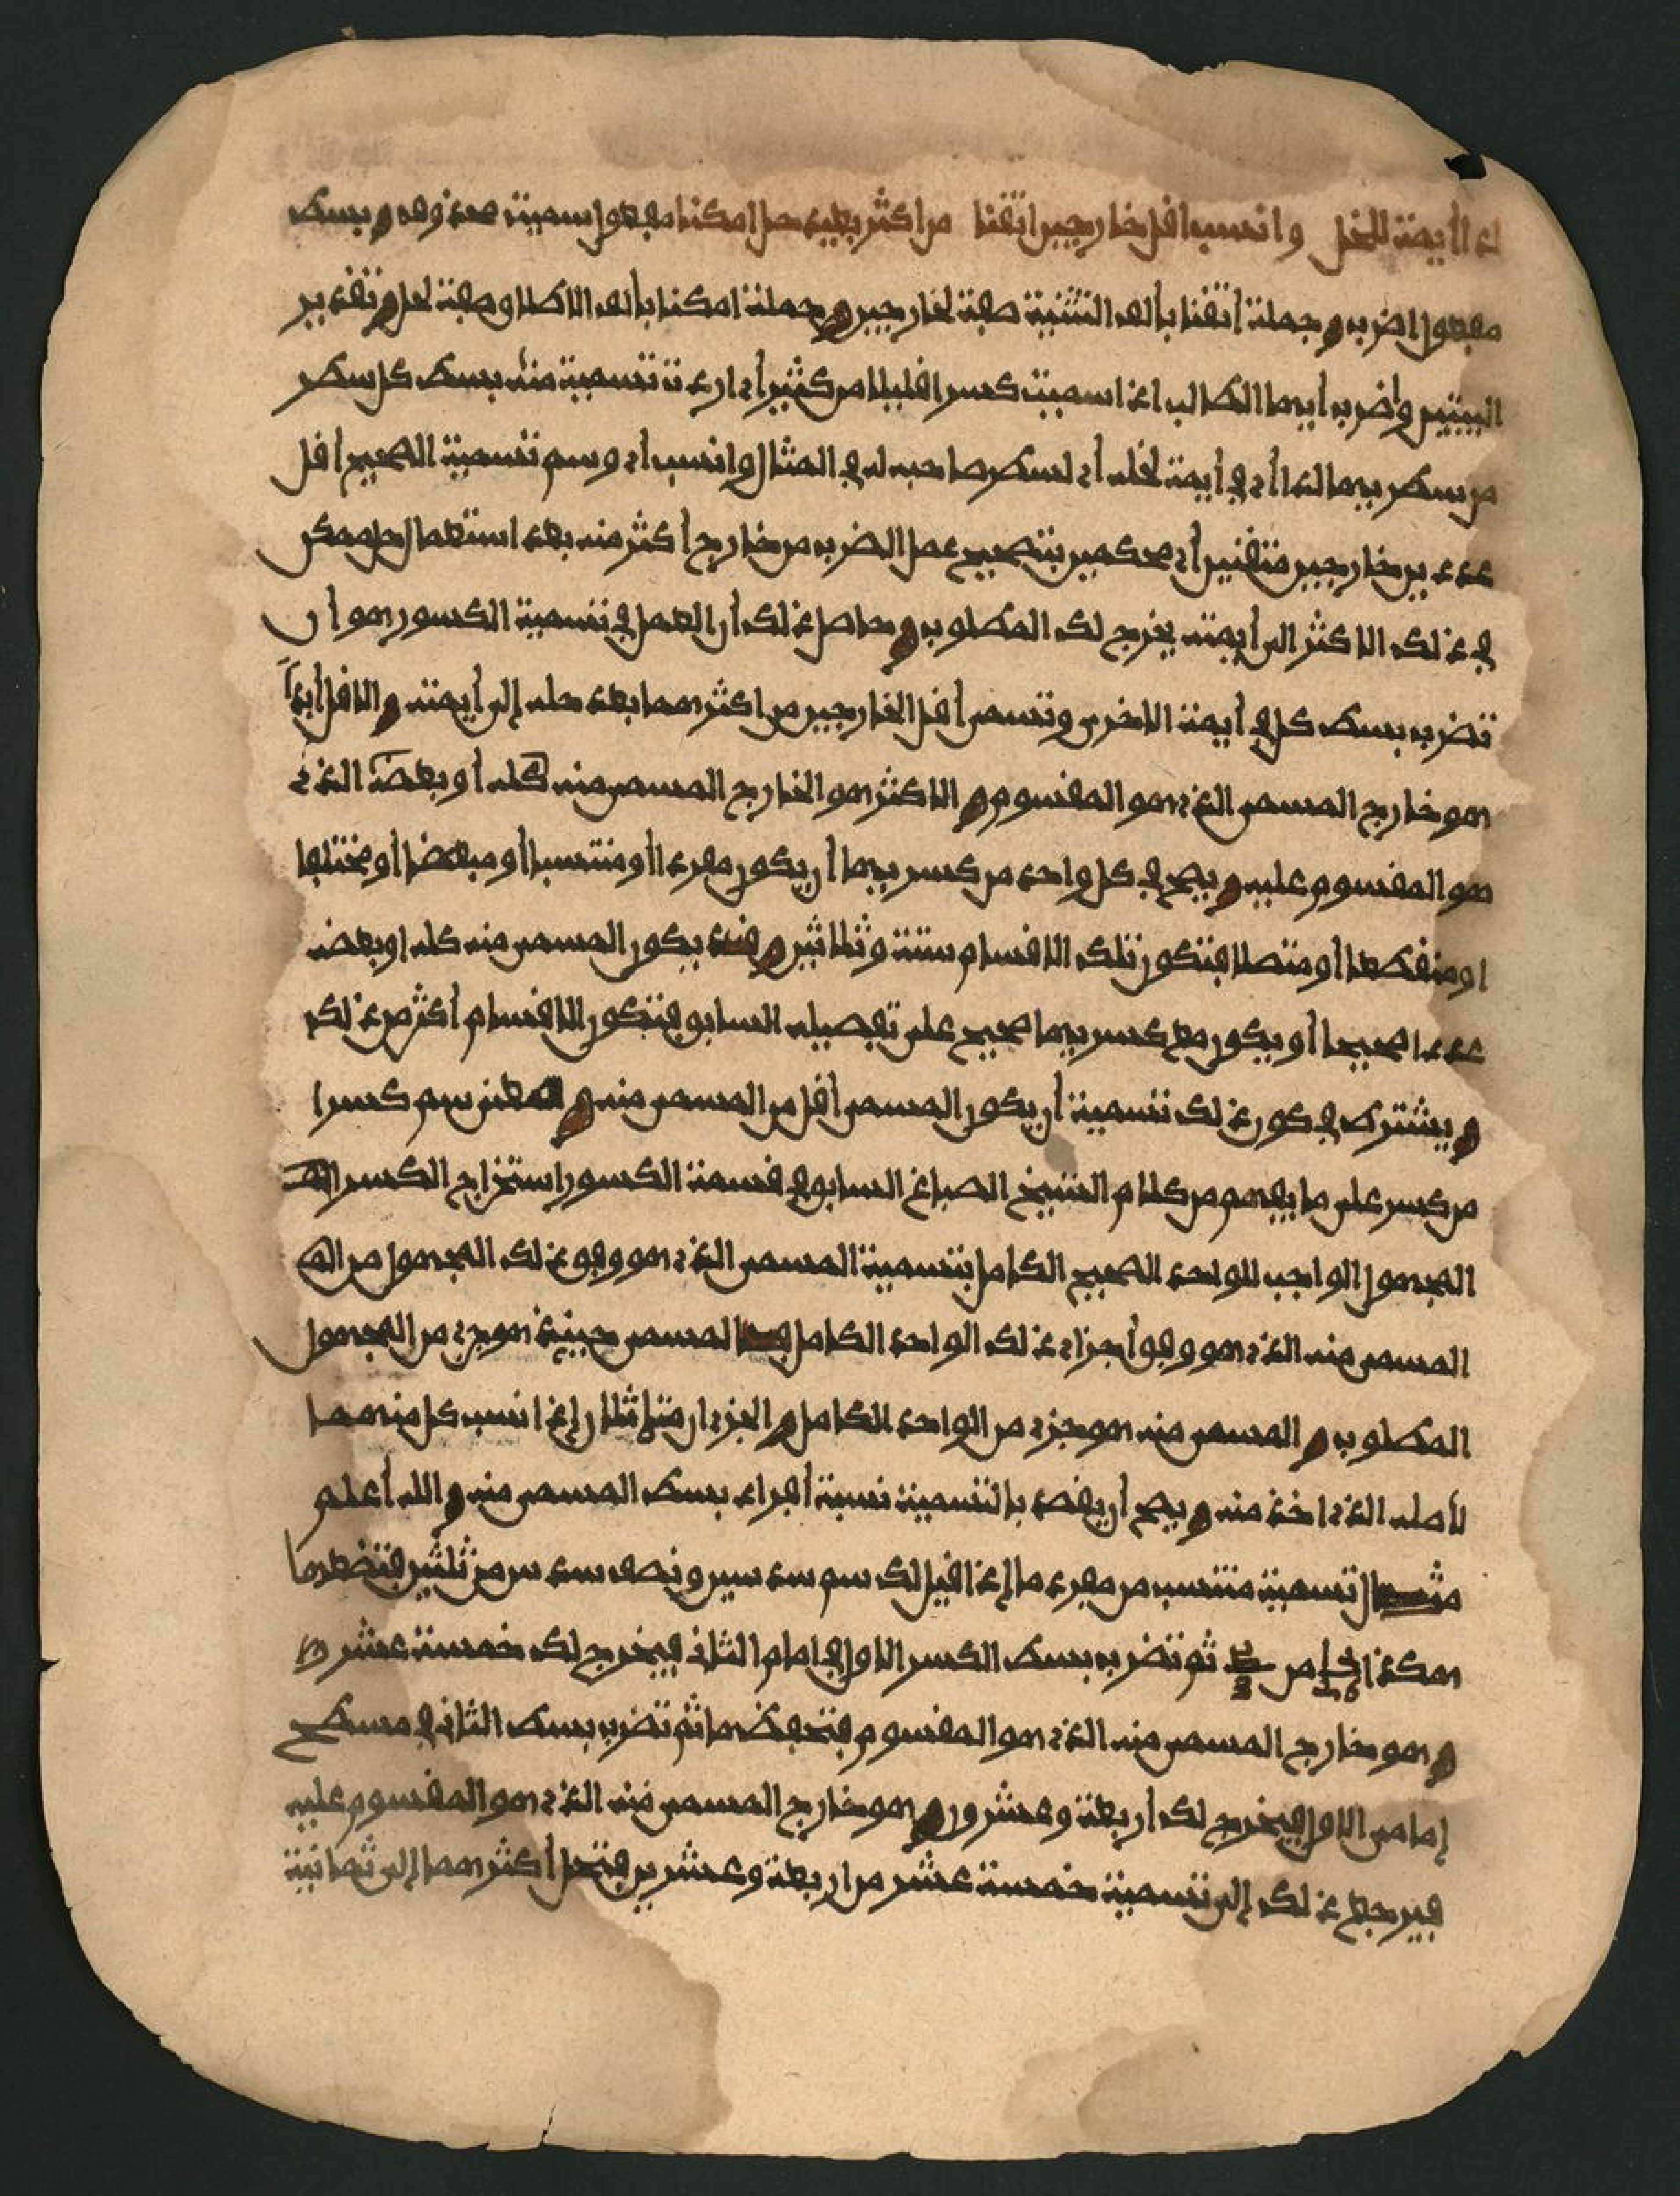 لدا أيمة للخل وانسب اقل خارجين اتقنا من اكثر بعيد حل امكنا مفعول سميت حذف وبسط
مفعول اضرب و جملة أتقنا بألف التثنية صفة لخارجين و جملة امكنا بألف الاطلاق صفة لحل و تقدير
البيتين واضرب أيها الطالب اذا سميت كسرا قليلا من كثير أي اردت تسمية منه بسط كل سطر
من سطريهما لدا أي في أيمة لخله أي لسطر صاحبه له في المثال وانسب أي وسم تسمية الصحيح أقل
عدد ين خارجين متقنين أي محكمين بتصحيح عمل الضرب من خارج أكثر منه بعد استعمال حل ممكن
في ذلك الاكثر الى أيمته يخرج لك المطلوب و حاصل ذلك أن العمل في تسمية الكسور هو أن
تضرب بسط كل في أيمة الاخرى وتسمى أقل الخارجين من اكثرهما بعد حله إلى أيمته و الاقل أبدا
هو خارج المسمى الذي هو المقسوم و الاكثر هو الخارج المسمى منه كله أو بعضه الذي
هو المقسوم عليه و يصح في كل واحد من كسريهما أن يكون مفردا أو منتسبا أو مبعضا أو مختلفا
او منقطعا أو متصلا فتكون تلك الاقسام ستة وثلاثين و قد يكون المسمى منه كله او بعضه
عددا صحيحا أو يكون مع كسريهما صحيح على تفصيله السابق فتكون الاقسام أكثر من ذلك
و يشترط في كون ذلك تسمية أن يكون المسمى أقل من المسمى منه و معنى سم كسرا
من كسر على ما يفهم من كلام الشيخ الصباغ السابق في قسمة الكسور استخراج الكسر
المجهول الواجب للواحد الصحيح الكامل بتسمية المسمى الذي هو وفق ذلك المجهول من
المسمى منه الذي هو وفق أجزاء ذلك الواحد الكامل المسمى حينئذ هو جزء من المجهول
المطلوب و المسمى منه هو جزء من الواحد الكامل و الجزءان متماثلان إذا نسب كل منهما
لأصله الذي اخذ منه و يصح أن يقصد بالتسمية نسبة أفراد بسط المسمى منه و الله أعلم
مثال تسمية منتسب من مفرد ما إذا قيل لك سم سدسين ونصف سدس من ثلثين فتضعهما
هكذا من ثم تضرب بسط الكسر الاول في امام الثاني فيخرج لك خمسة عشر
و هو خارج المسمى منه الذي هو المقسوم فتحفظها ثم تضرب بسط الثاني في مسطح
إمامي الاول فيخرج لك أربعة وعشرون و هو خارج المسمى منه الذي هو المقسوم عليه
فيرجع ذلك إلى تسمية خمسة عشر من اربعة وعشرين فتحل أكثرهما إلى ثمانية